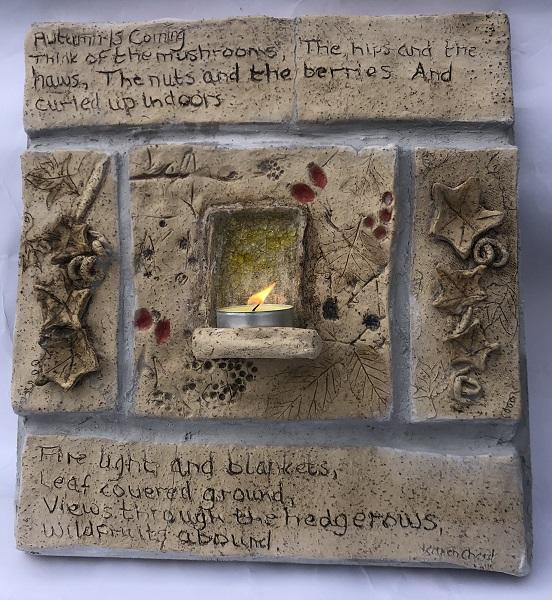 Autumn Is Coming
Think of the mushrooms, The hips and the
haws, The nuts and the berries And
curled up indoors
Fire light and blankets,
Leaf covered ground,
Views through the hedgerows,
Wildfruits abound.